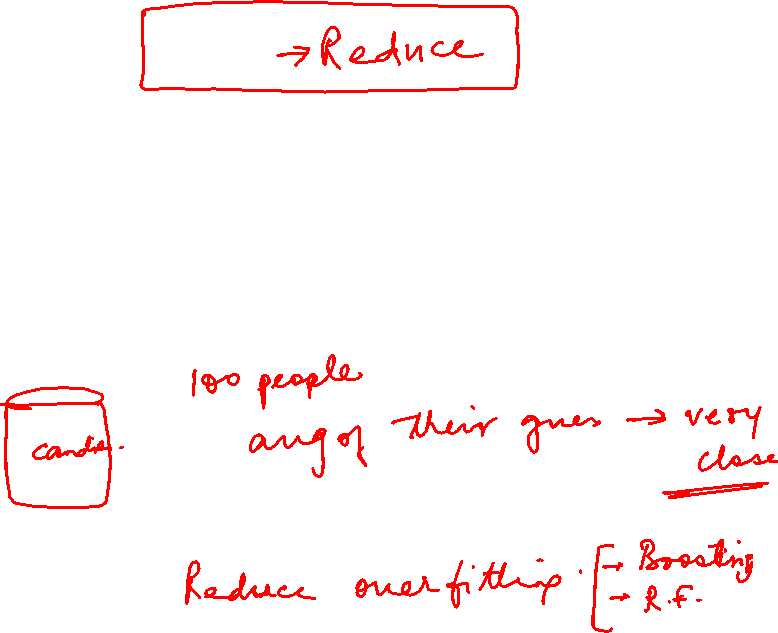 → Reduce
100 people
candie.
avg of their gues → very
close
Reduce overfitting. → Boosting
→ R.F.